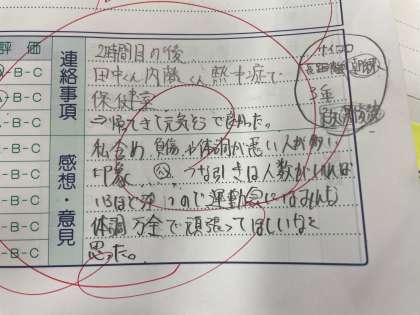 評 価
-B-C
A-B-C
-B-C
-B-C
-B-C
-B-C
-B-C
-B-C
連絡事項
2時間目の後
田中くん内藤くん熱中症で
保健室
⇒帰ってきて元気そうで良かった。
感想・意見
私含め、負傷や体調が悪い人が多い
印象 つな引きは人数がいれば
いるほど ので運動会にはみんな
体調万全で頑張ってほしいなと
思った。
サイコロ
3年